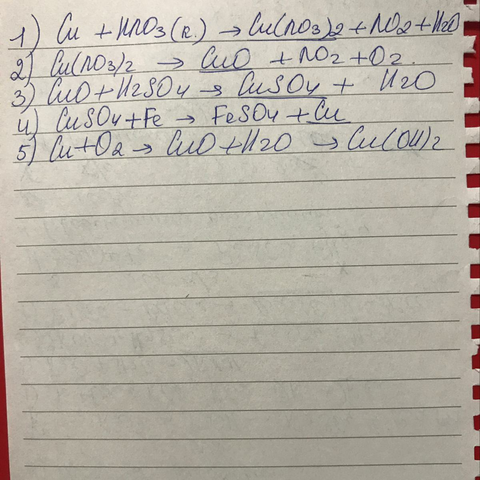 1) Cu + HNO3(к.) → Cu(NO3)2 + NO2 + H2O
2) Cu(NO3)2 → CuO + NO2 + O2.
3) CuO + H2SO4 → CuSO4 + H2O
4) CuSO4 + Fe → FeSO4 + Cu
5) Cu + O2 → CuO + H2O → Cu(OH)2